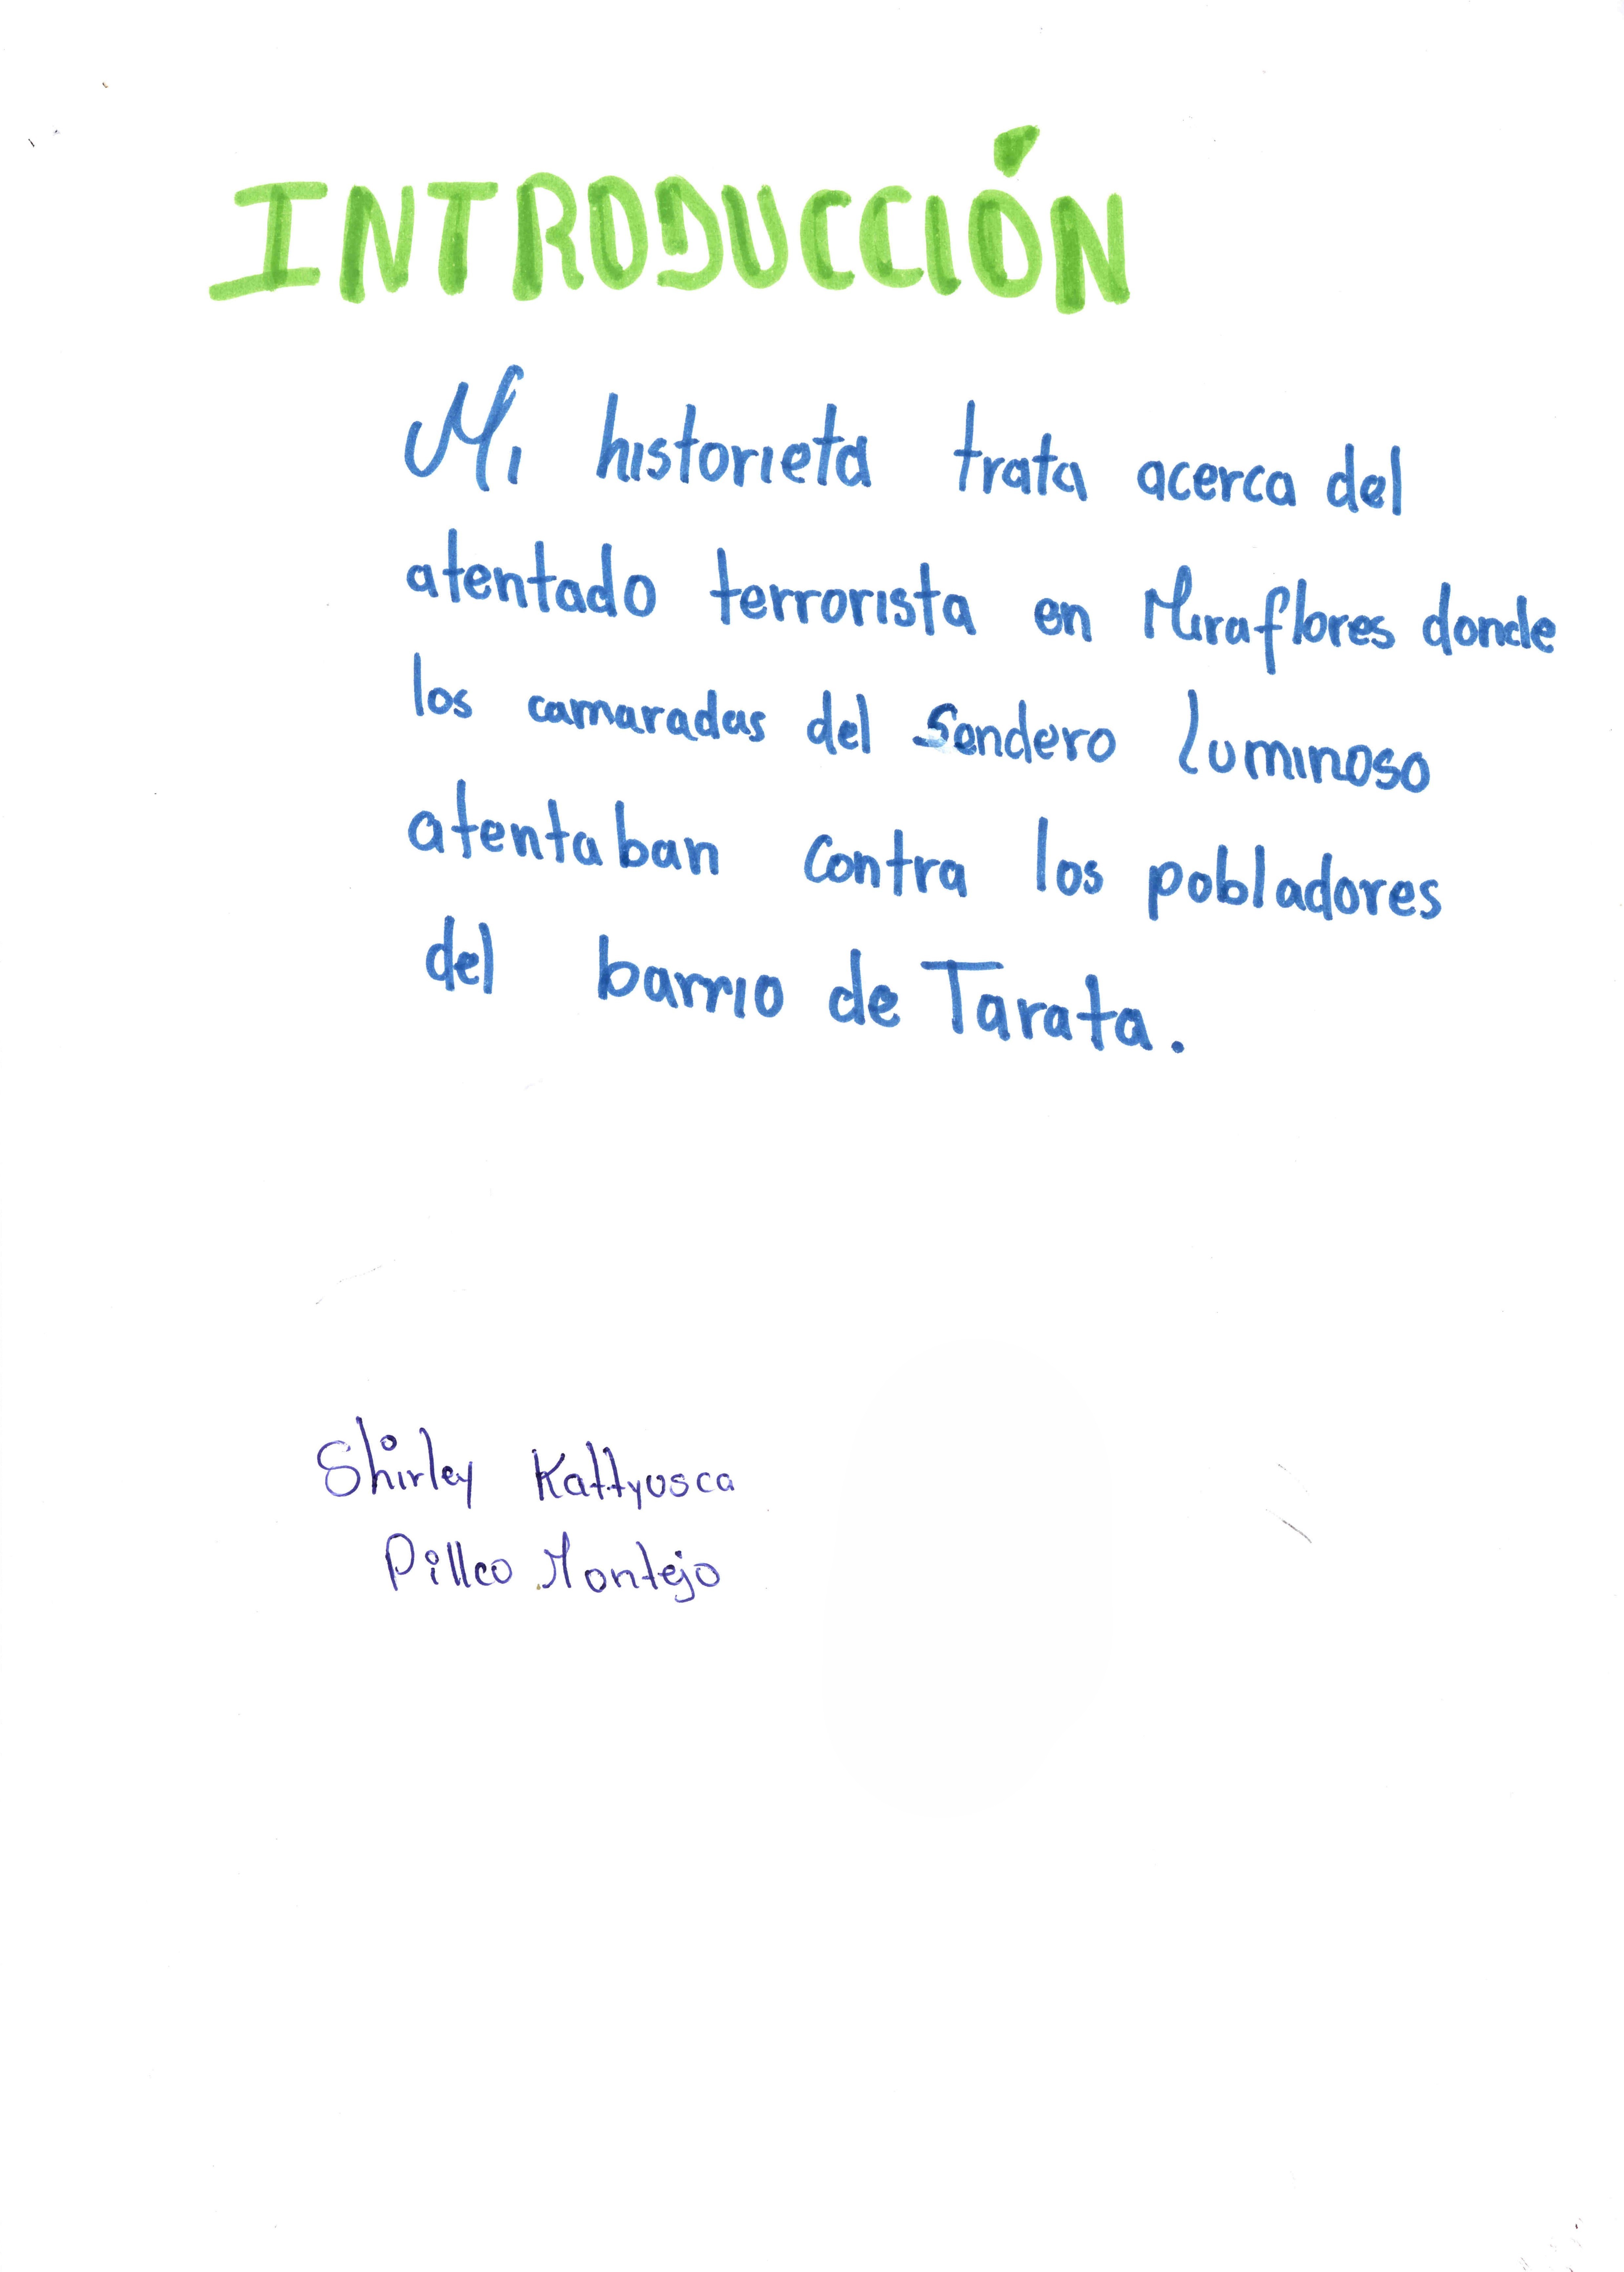 INTRODUCCIÓN
Mi historieta trata acerca del
atentado terrorista en Miraflores donde
los camaradas del Sendero Luminoso
atentaban contra los pobladores
del barrio de Tarata.
Shirley Kattyusca
Pillco Montejo